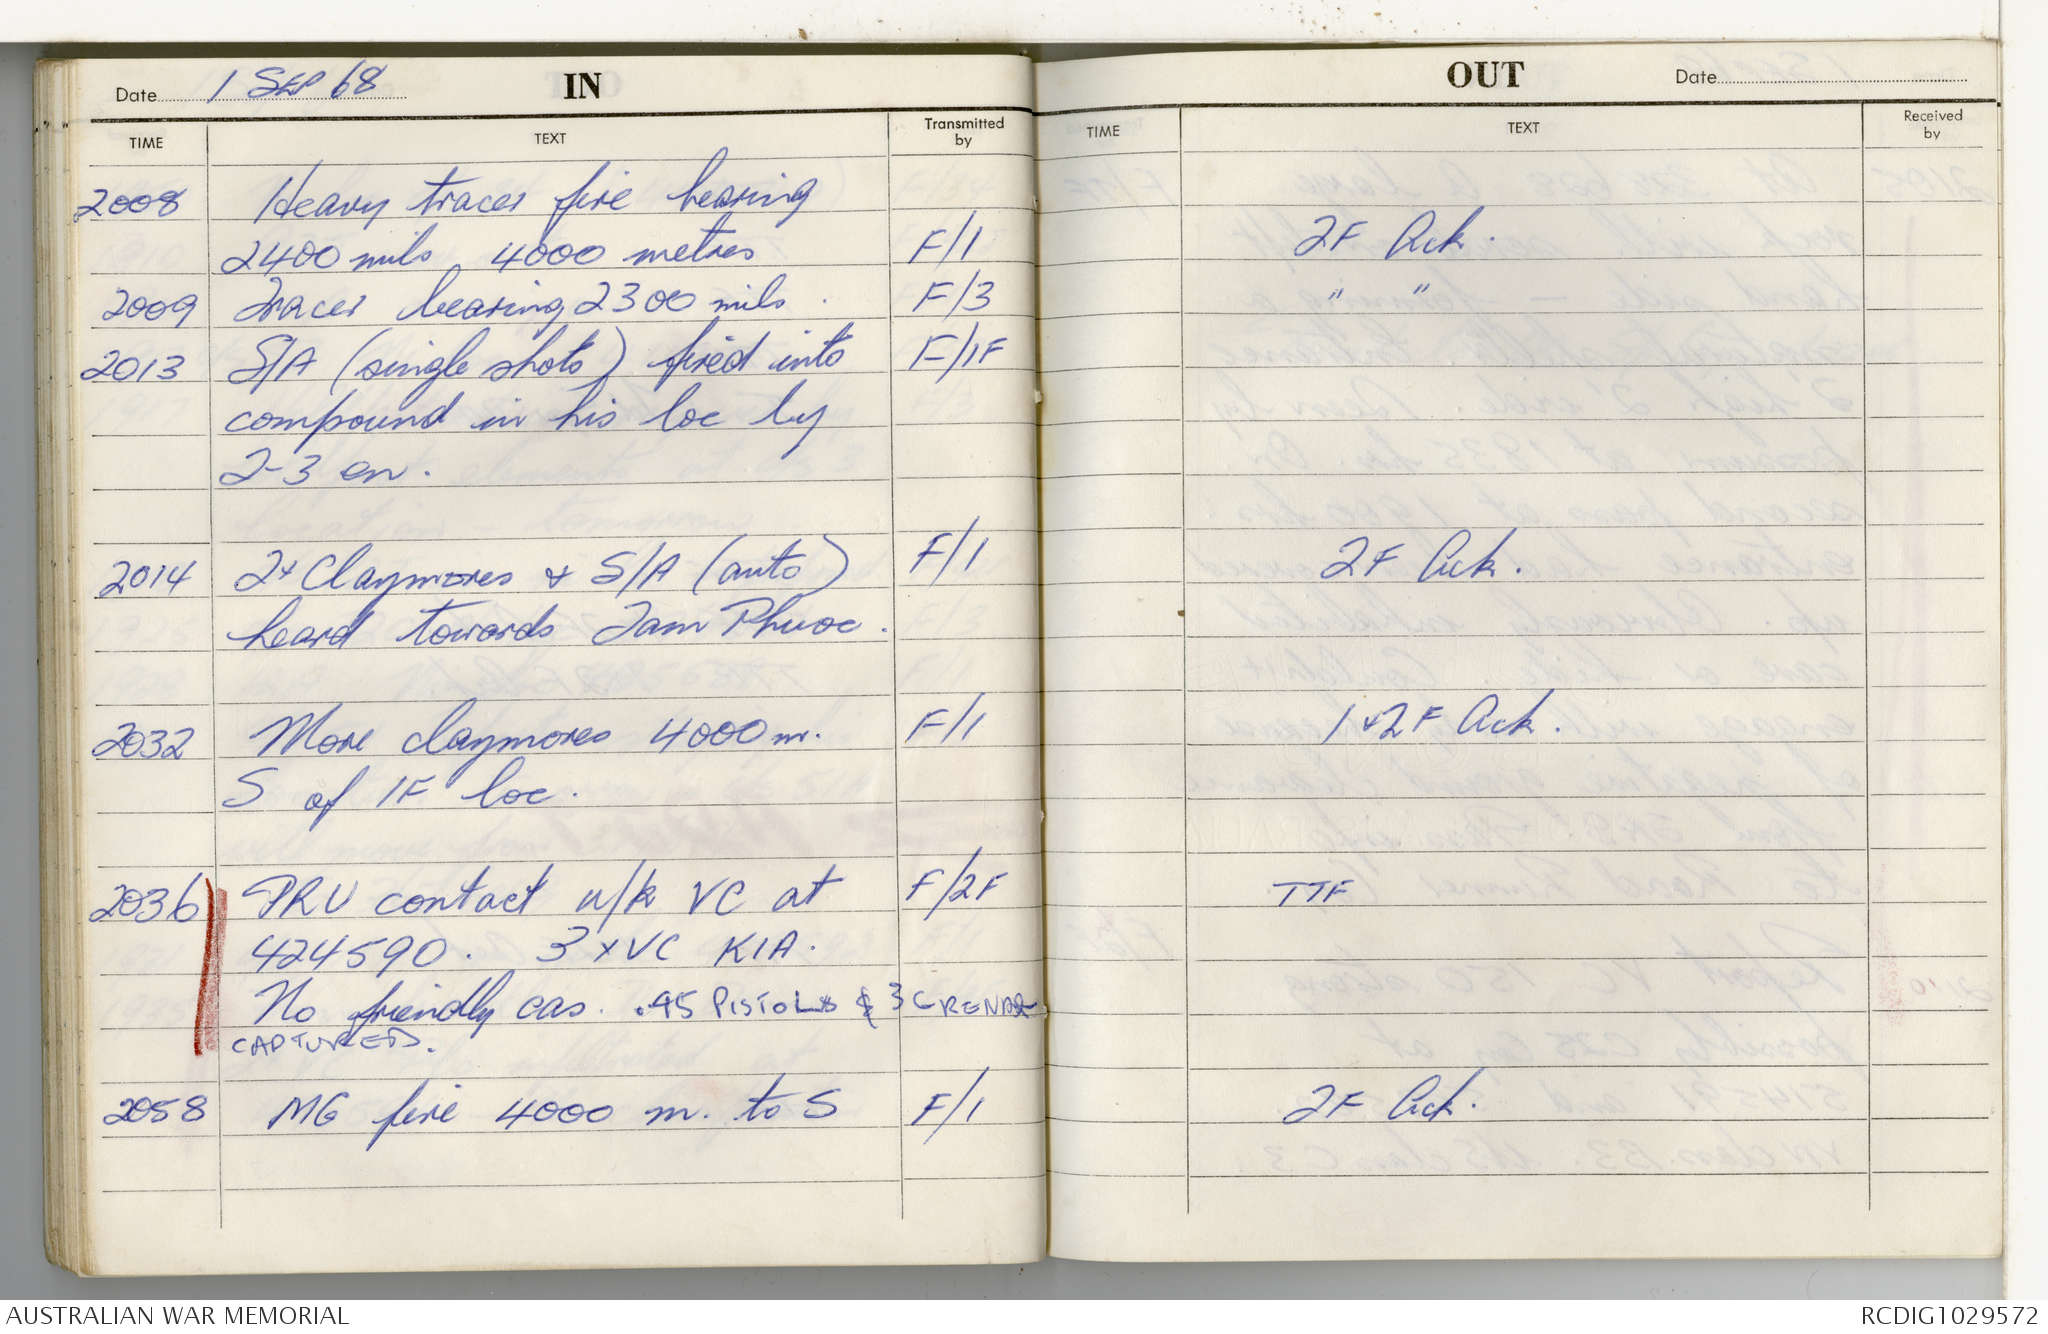 Date 1 SEP 68 IN
TIME TEXT Transmitted by
2008 Heavy tracer fire bearing
2400 mils 4000 metres F/1
2009 Tracer bearing 2300 mils . F/3
2013 S/A (single shots) fired into F/1F
compound in his loc by
2-3 en.
2014 2x Claymores & S/A (auto) F/1
heard towards Tam Phuoc.
2032 More claymores 4000 m. F/1
S of 1F loc.
2036 PRU contact u/k VC at F/2F
424590. 3 x VC KIA.
No friendly cas. .45 PISTOLS & 3 GRENADE
CAPTURED.
2058 MG fire 4000 m. to S F/1
OUT Date
TIME TEXT Received by
2F Ack.
" "
2F Ack.
1 & 2F Ack.
TTF
2F Ack.
AUSTRALIAN WAR MEMORIAL RCDIG1029572